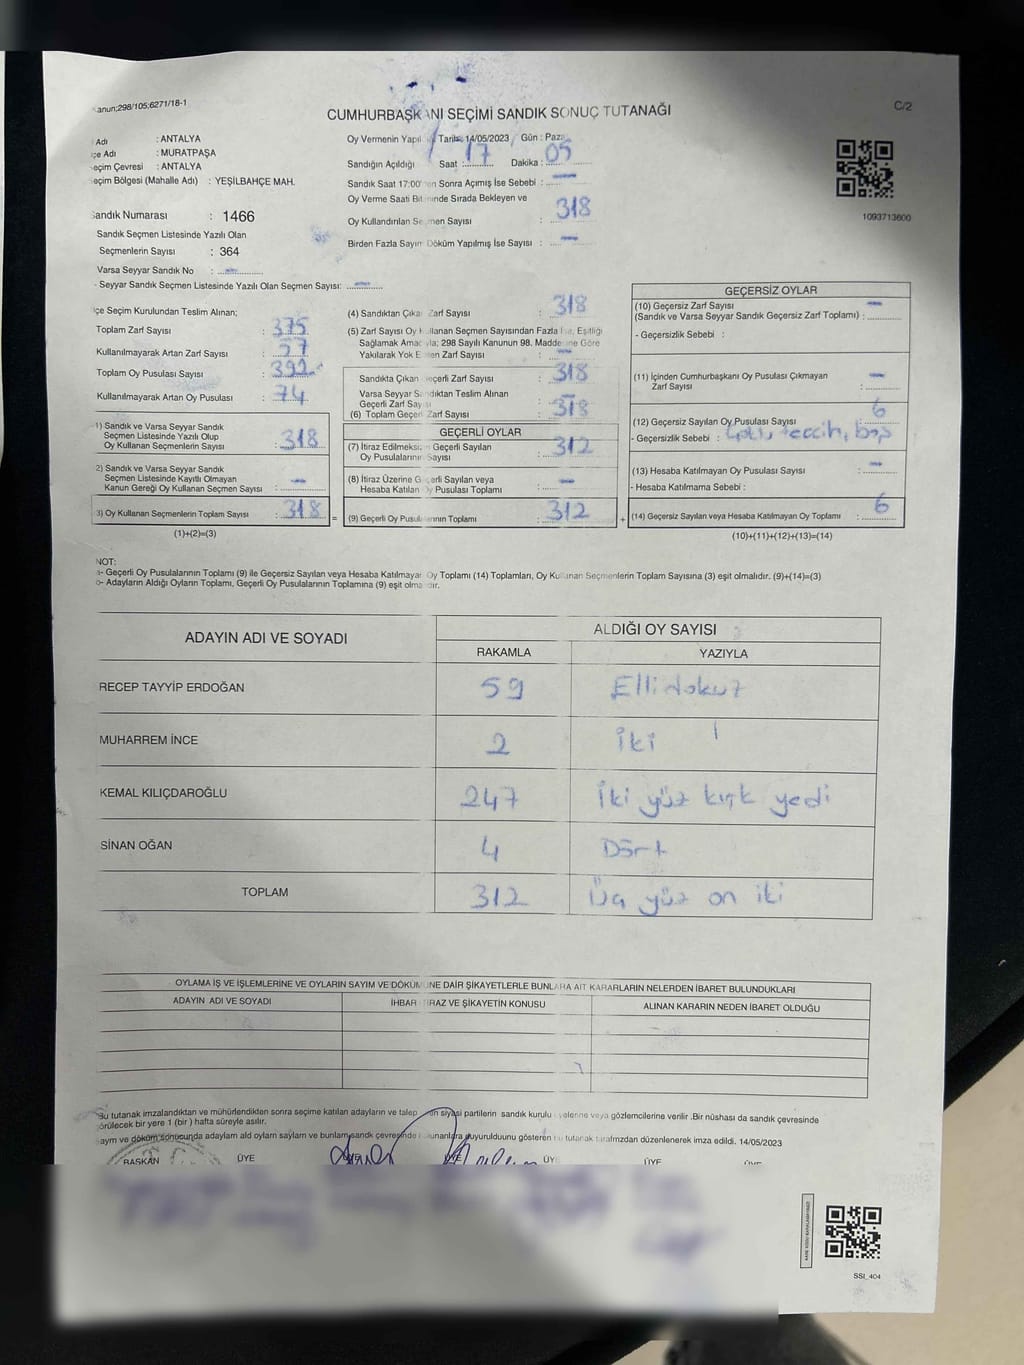 anun;298/105;6271/18-1
C/2
CUMHURBAŞKANI SEÇİMİ SANDIK SONUÇ TUTANAĞI
Adı : ANTALYA
çe Adı : MURATPAŞA
eçim Çevresi : ANTALYA
eçim Bölgesi (Mahalle Adı) : YEŞİLBAHÇE MAH.
Sandık Numarası : 1466
Sandık Seçmen Listesinde Yazılı Olan
Seçmenlerin Sayısı : 364
Varsa Seyyar Sandık No : —
- Seyyar Sandık Seçmen Listesinde Yazılı Olan Seçmen Sayısı: —
Oy Vermenin Yapıl Tarih: 14/05/2023 Gün : Paz
Sandığın Açıldığı Saat : 17 Dakika : 05
Sandık Saat 17:00' en Sonra Açımış İse Sebebi : —
Oy Verme Saati Bit inde Sırada Bekleyen ve
Oy Kullandırılan Seçmen Sayısı : 318
Birden Fazla Sayım Döküm Yapılmış İse Sayısı : —
1093713600
çe Seçim Kurulundan Teslim Alınan;
Toplam Zarf Sayısı : 375
Kullanılmayarak Artan Zarf Sayısı : 57
Toplam Oy Pusulası Sayısı : 392
Kullanılmayarak Artan Oy Pusulası : 74
1) Sandık ve Varsa Seyyar Sandık
Seçmen Listesinde Yazılı Olup
Oy Kullanan Seçmenlerin Sayısı : 318
2) Sandık ve Varsa Seyyar Sandık
Seçmen Listesinde Kayıtlı Olmayan
Kanun Gereği Oy Kullanan Seçmen Sayısı : —
3) Oy Kullanan Seçmenlerin Toplam Sayısı : 318
(1)+(2)=(3)
(4) Sandıktan Çıkan Zarf Sayısı : 318
(5) Zarf Sayısı Oy Kullanan Seçmen Sayısından Fazla İse, Eşitliği
Sağlamak Amacıyla; 298 Sayılı Kanunun 98. Maddesine Göre
Yakılarak Yok Edilen Zarf Sayısı : —
Sandıkta Çıkan Geçerli Zarf Sayısı : 318
Varsa Seyyar Sandıktan Teslim Alınan
Geçerli Zarf Sayısı : —
(6) Toplam Geçerli Zarf Sayısı : 318
GEÇERLİ OYLAR
(7) İtiraz Edilmeksizin Geçerli Sayılan
Oy Pusulalarının Sayısı : 312
(8) İtiraz Üzerine Geçerli Sayılan veya
Hesaba Katılan Oy Pusulası Toplamı : —
(9) Geçerli Oy Pusulalarının Toplamı : 312
GEÇERSİZ OYLAR
(10) Geçersiz Zarf Sayısı
(Sandık ve Varsa Seyyar Sandık Geçersiz Zarf Toplamı) : —
- Geçersizlik Sebebi :
(11) İçinden Cumhurbaşkanı Oy Pusulası Çıkmayan
Zarf Sayısı : —
(12) Geçersiz Sayılan Oy Pusulası Sayısı : 6
- Geçersizlik Sebebi : tercih, boş
(13) Hesaba Katılmayan Oy Pusulası Sayısı : —
- Hesaba Katılmama Sebebi :
(14) Geçersiz Sayılan veya Hesaba Katılmayan Oy Toplamı : 6
(10)+(11)+(12)+(13)=(14)
NOT:
a- Geçerli Oy Pusulalarının Toplamı (9) ile Geçersiz Sayılan veya Hesaba Katılmayan Oy Toplamı (14) Toplamları, Oy Kullanan Seçmenlerin Toplam Sayısına (3) eşit olmalıdır. (9)+(14)=(3)
b- Adayların Aldığı Oyların Toplamı, Geçerli Oy Pusulalarının Toplamına (9) eşit olmalıdır.
ADAYIN ADI VE SOYADI
ALDIĞI OY SAYISI
RAKAMLA YAZIYLA
RECEP TAYYİP ERDOĞAN 59 Elli dokuz
MUHARREM İNCE 2 İki
KEMAL KILIÇDAROĞLU 247 İki yüz kırk yedi
SİNAN OĞAN 4 Dört
TOPLAM 312 Üç yüz on iki
OYLAMA İŞ VE İŞLEMLERİNE VE OYLARIN SAYIM VE DÖKÜMÜNE DAİR ŞİKAYETLERLE BUNLARA AİT KARARLARIN NELERDEN İBARET BULUNDUKLARI
ADAYIN ADI VE SOYADI
İHBAR İTİRAZ VE ŞİKAYETİN KONUSU
ALINAN KARARIN NEDEN İBARET OLDUĞU
Bu tutanak imzalandıktan ve mühürlendikten sonra seçime katılan adayların ve talep eden siyasi partilerin sandık kurulu üyelerine veya gözlemcilerine verilir .Bir nüshası da sandık çevresinde
görülecek bir yere 1 (bir ) hafta süreyle asılır.
ayım ve döküm sonucunda adaylam ald oylam saylam ve bunlam sandk çevresinde bulunanlara duyurulduunu gösteren bu tutanak tarafmzdan düzenlenerek imza edildi. 14/05/2023
BAŞKAN ÜYE ÜYE ÜYE ÜYE ÜYE
SSI_404